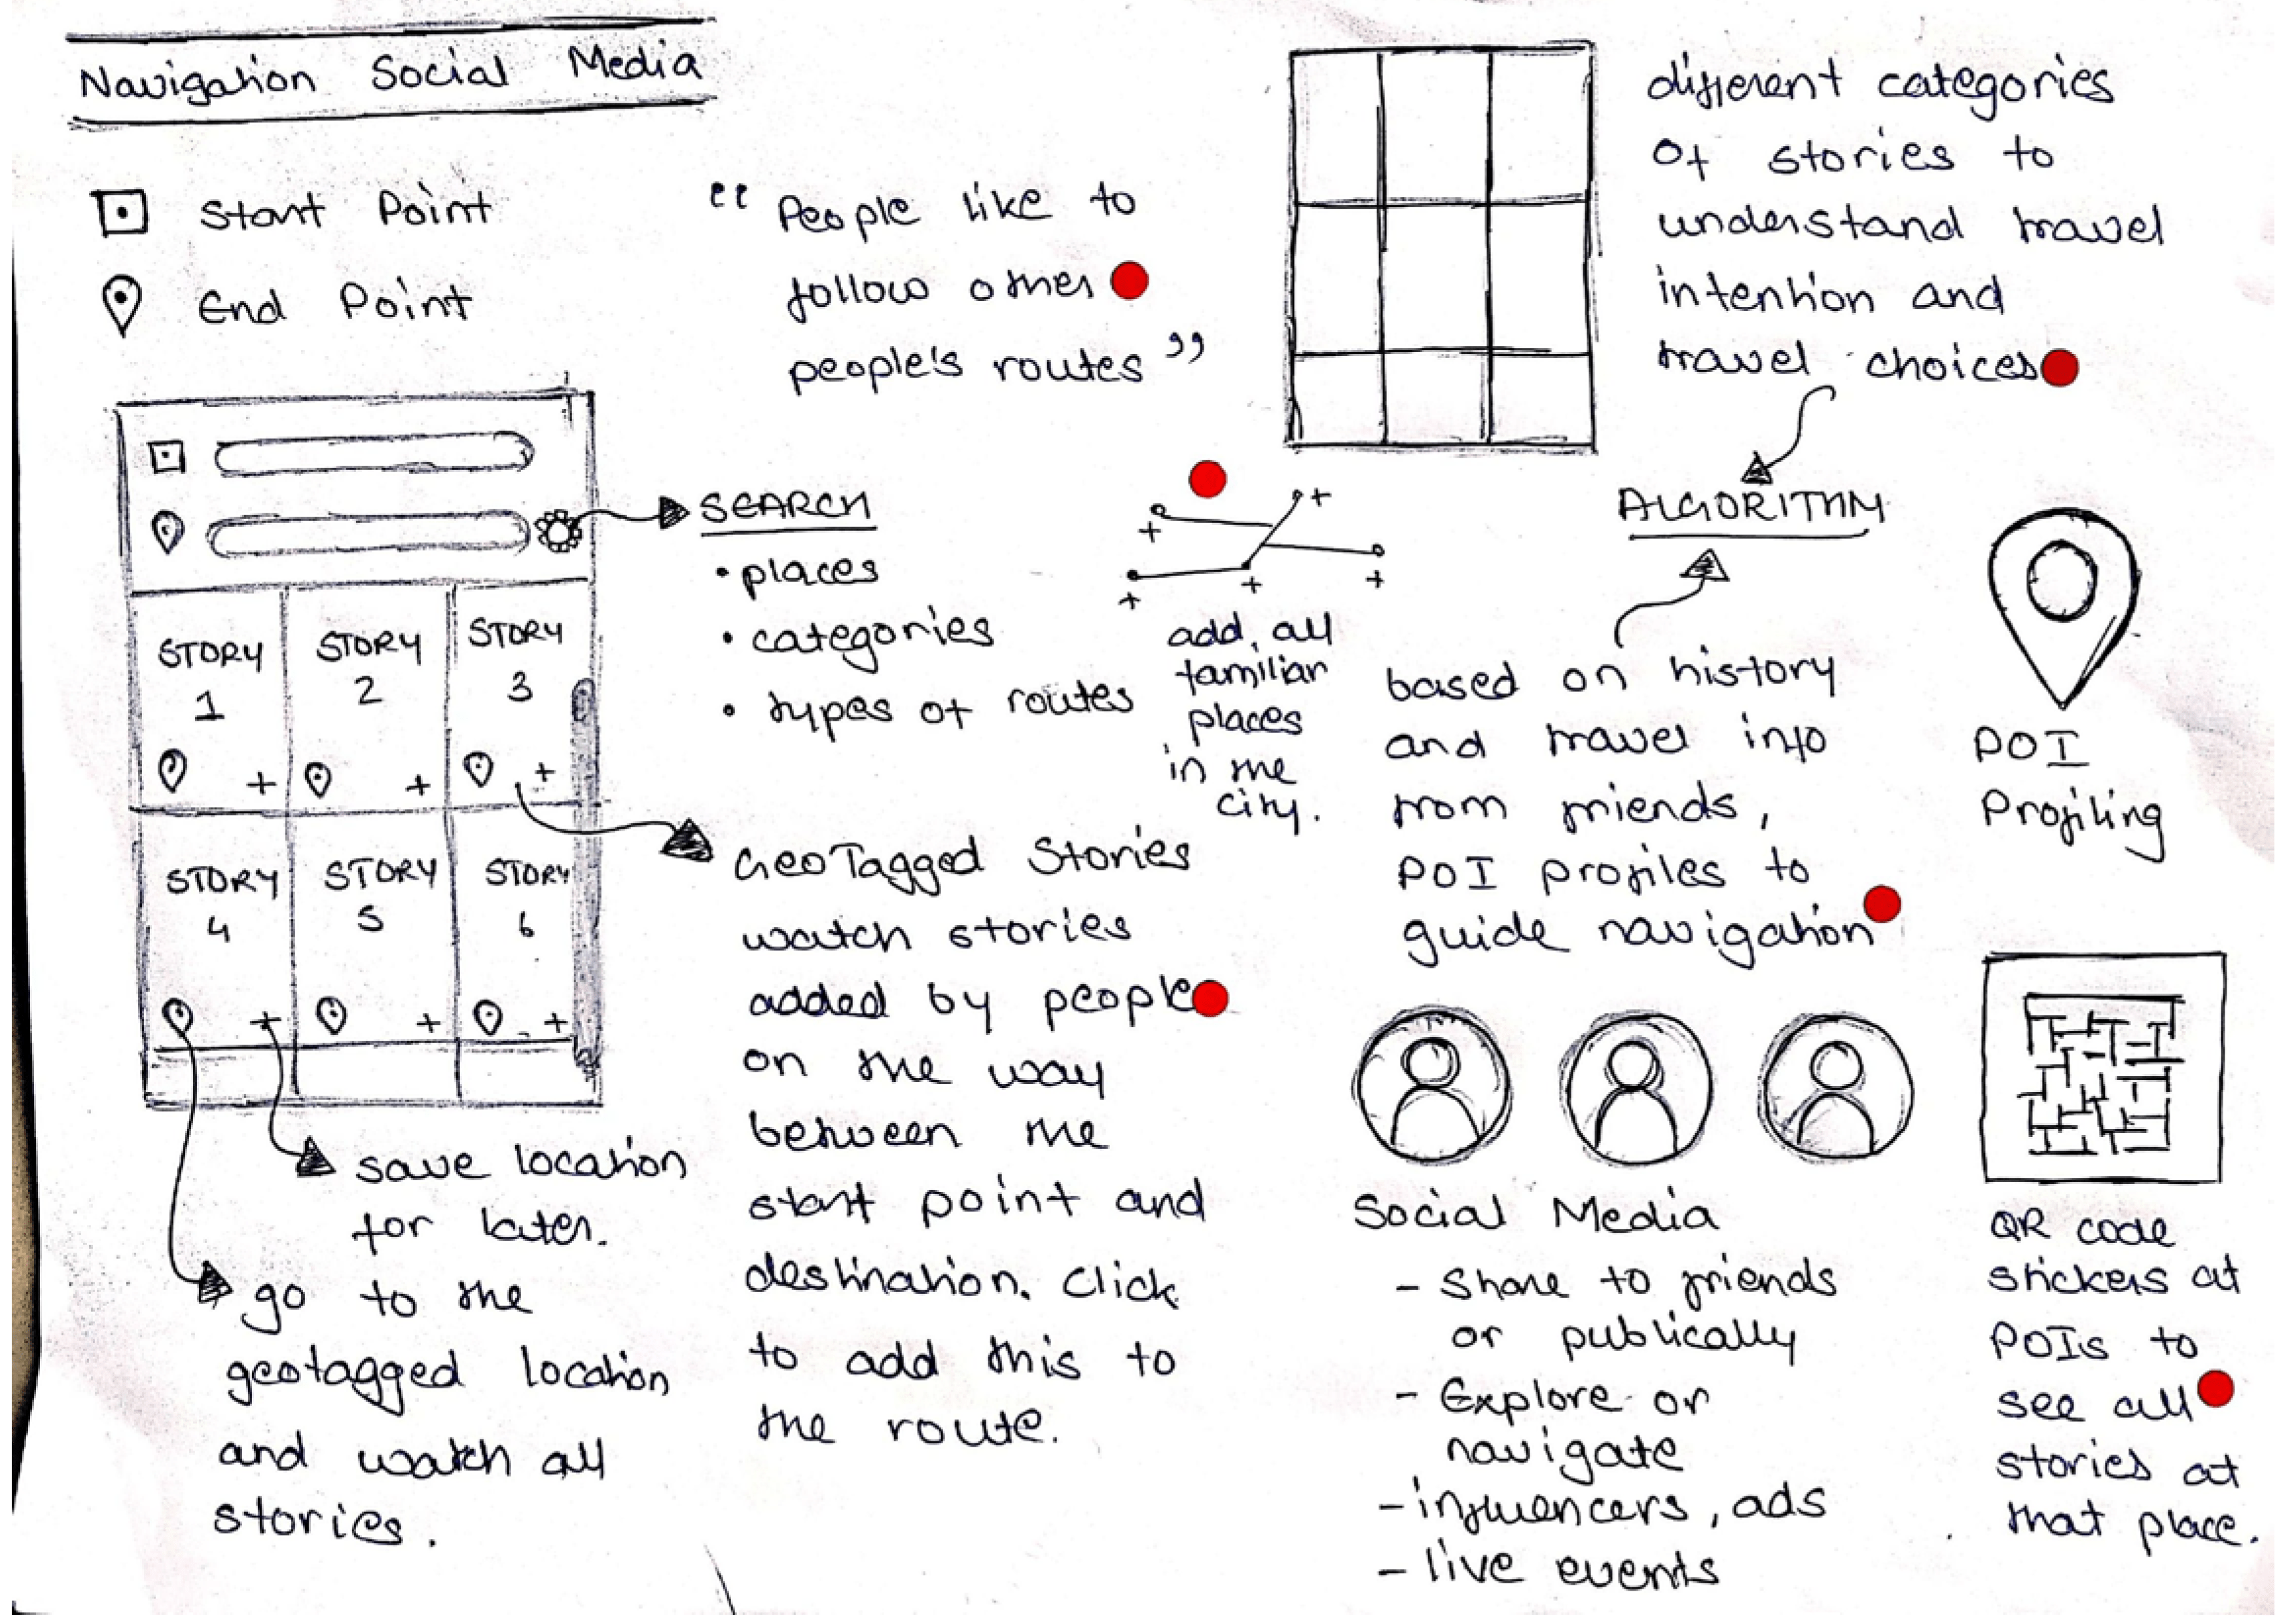 Navigation Social Media
Start Point
End Point
STORY
1
STORY
2
STORY
3
STORY
4
STORY
5
STORY
6
save location
for later.
go to the
geotagged location
and watch all
stories.
“ People like to
follow other
people's routes ”
SEARCH
• places
• categories
• types of routes
GeoTagged Stories
watch stories
added by people
on the way
between the
start point and
destination. Click
to add this to
the route.
add, all
familiar
places
in the
city.
different categories
of stories to
understand travel
intention and
travel choices
ALGORITHM
based on history
and travel info
from friends,
POI profiles to
guide navigation
POI
Profiling
Social Media
- Share to friends
or publically
- Explore or
navigate
- influencers, ads
- live events
QR code
stickers at
POIs to
see all
stories at
that place.